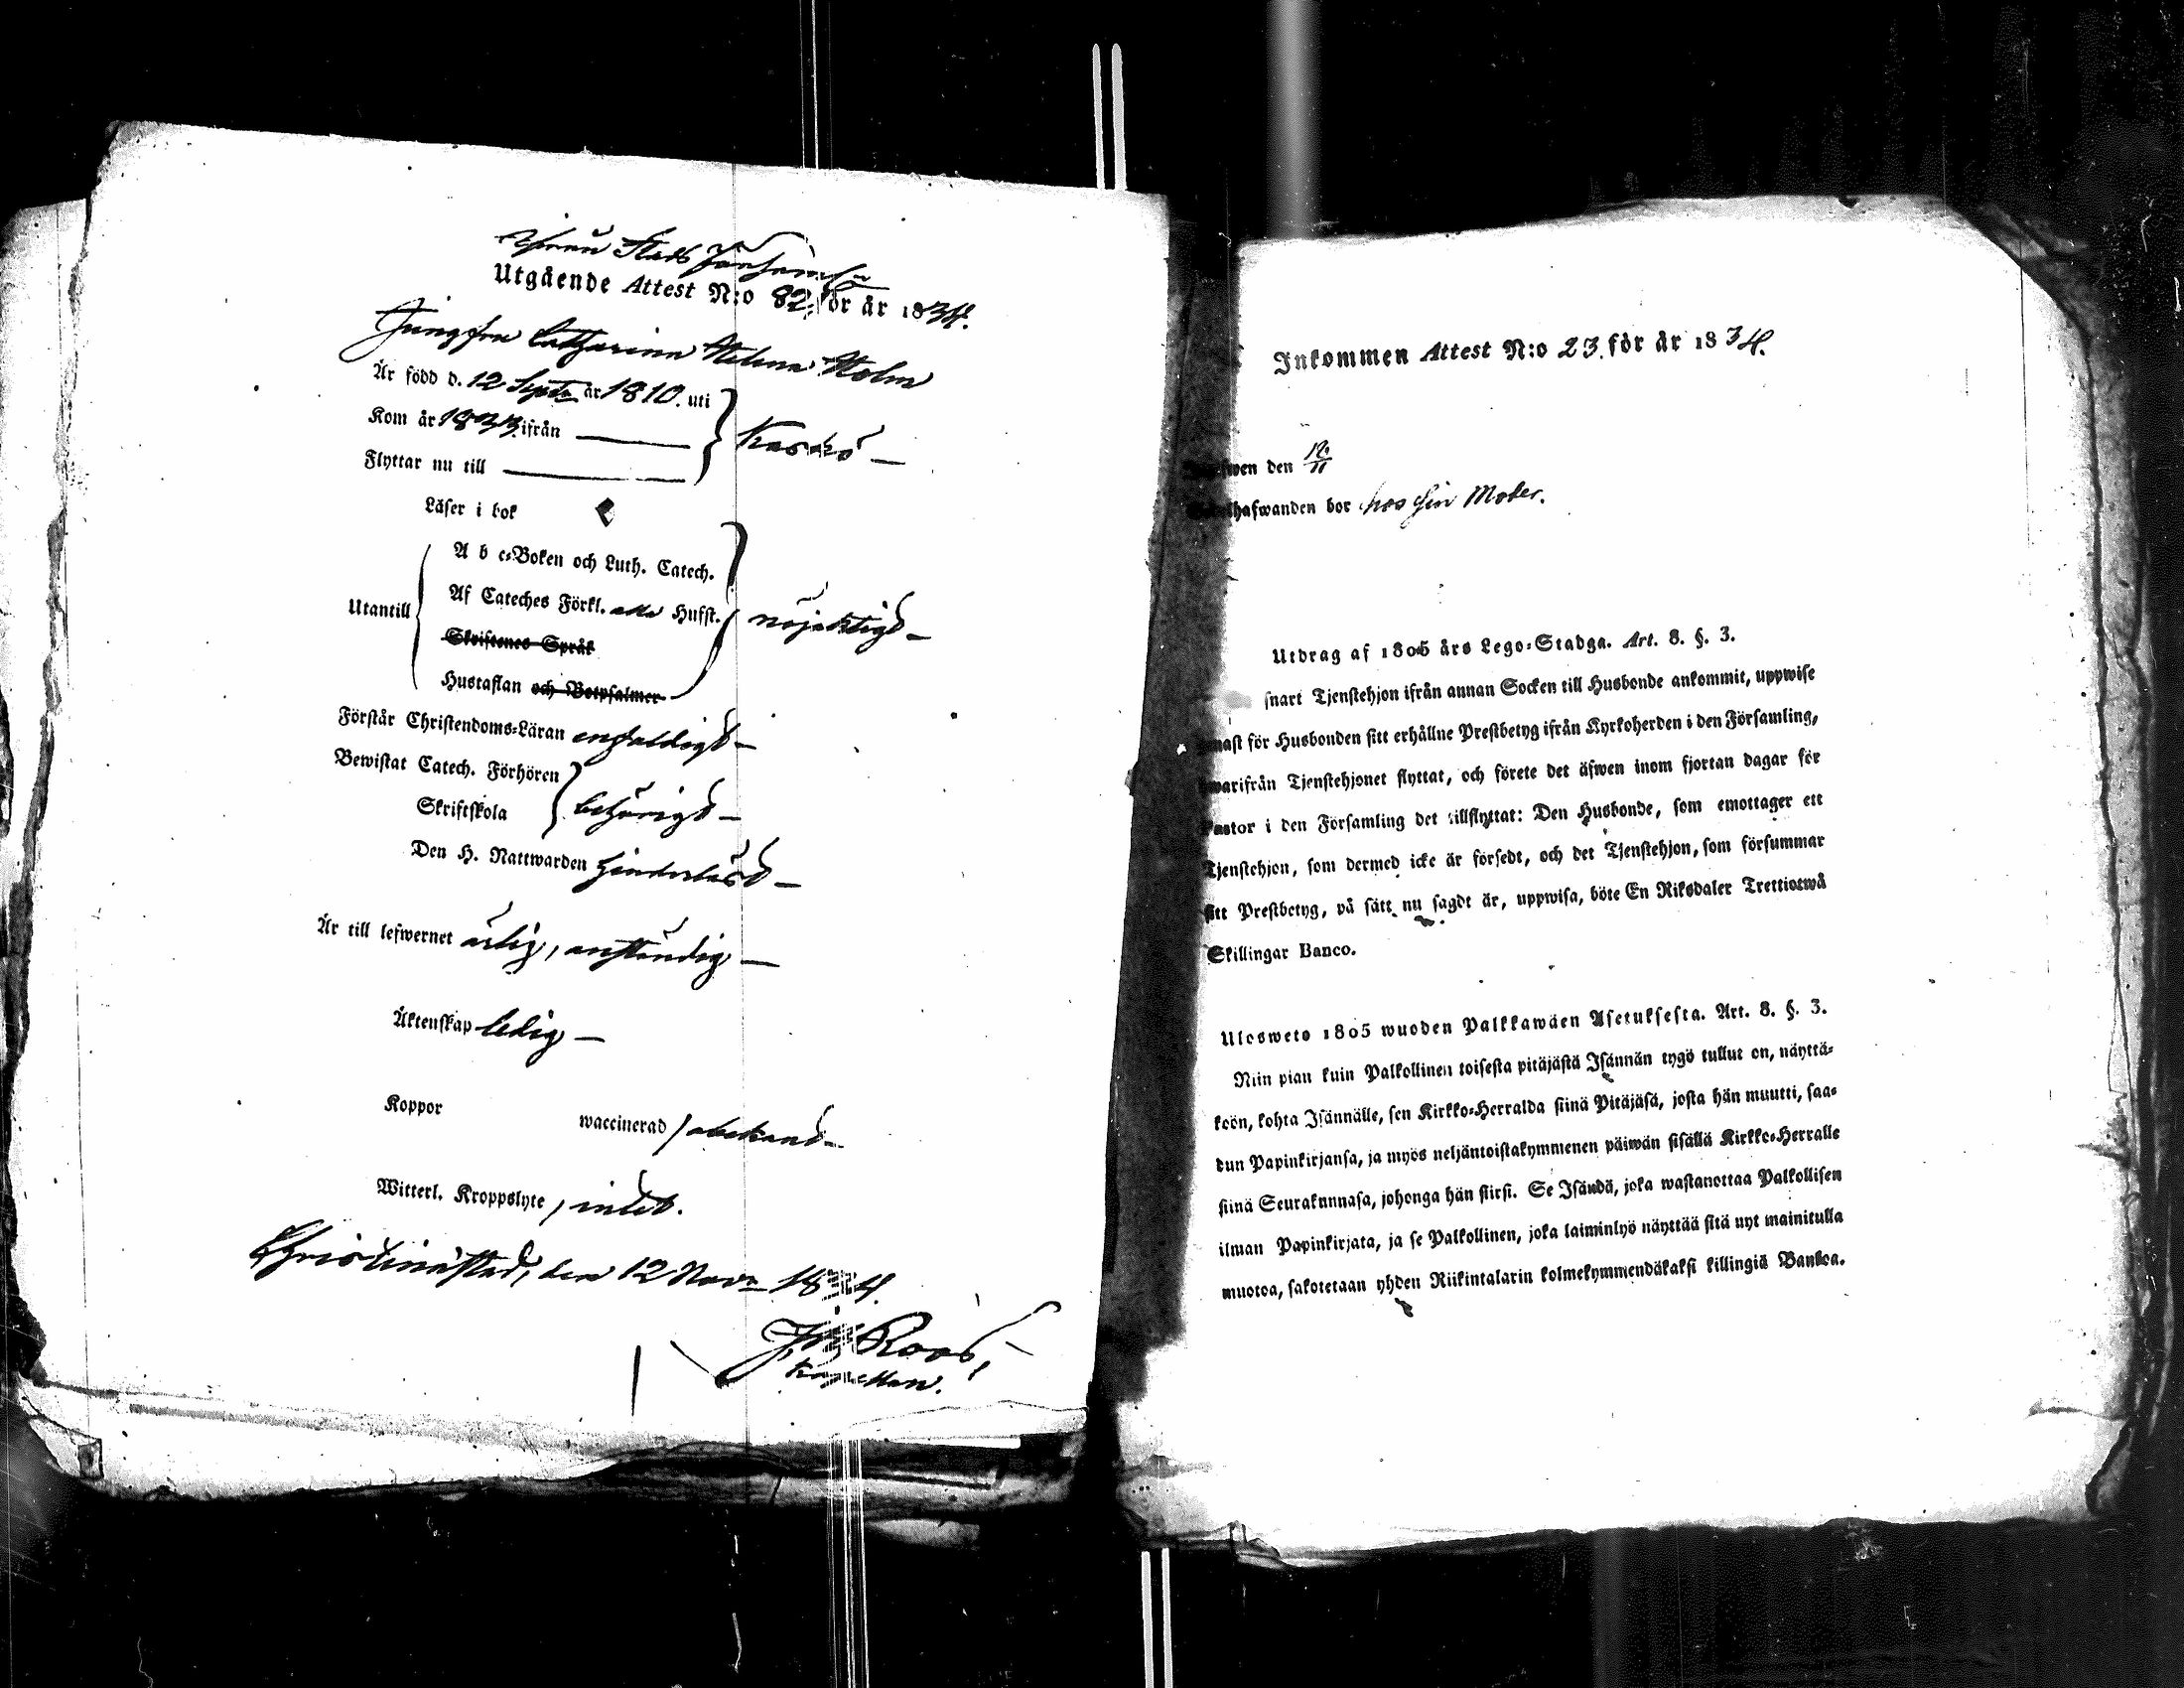 Utgående Attest N:o 82 för år 1834.
Jungfru Catharina Helena Holm
Är född d. 12 Sept. år 1810. uti
Kom år 1833. ifrån
Kaskö
Flyttar nu till
Läser i bok
A b c-Boken och Luth. Catech.
Utantill Af Cateches Förkl. alla Hufst. nöjaktigt
Skriftenes Språk
Hustaflan och Botpsalmer
Förstår Christendoms-Läran enfaldigt
Bewistat Catech. Förhören
Skriftskola behörigt
Den H. Nattwarden
Är till lefwernet ärlig, anständig
Äktenskap ledig
Koppor waccinerad obekant
Witterl. Kroppslyte, intet.
Christinestad, den 12 Nov. 1834.
Roos,
Kapellan.
Inkommen Attest N:o 23. för år 1834.
den 12/11
bor hos sin Moder.
Utdrag af 1805 års Lego-Stadga. Art. 8. §. 3.
snart Tjenstehjon ifrån annan Socken till Husbonde ankommit, uppwise
för Husbonden sitt erhållne Prestbetyg ifrån Kyrkoherden i den Församling,
hwarifrån Tjenstehjonet flyttat, och förete det äfwen inom fjortan dagar för
Pastor i den Församling det tillflyttat: Den Husbonde, som emottager ett
Tjenstehjon, som dermed icke är försedt, och det Tjenstehjon, som försummar
sitt Prestbetyg, på sätt nu sagdt är, uppwisa, böte En Riksdaler Trettiotwå
Skillingar Banco.
Ulosweto 1805 wuoden Palkkawäen Asetuksesta. Art. 8. §. 3.
Niin pian kuin Palkollinen toisesta pitäjästä Isännän tygö tullut on, näyttä-
köön, kohta Isännälle, sen Kirkko-Herralda siinä Pitäjäsä, josta hän muutti, saa-
dun Papinkirjansa, ja myös neljäntoistakymmenen päiwän sisällä Kirkko-Herralle
siinä Seurakunnasa, johonga hän siirsi. Se Isändä, joka wastanottaa Palkollisen
ilman Papinkirjata, ja se Palkollinen, joka laiminlyö näyttää sitä nyt mainitulla
muotoa, sakotetaan yhden Riikintalarin kolmekymmendäkaksi killingiä Bankoa.